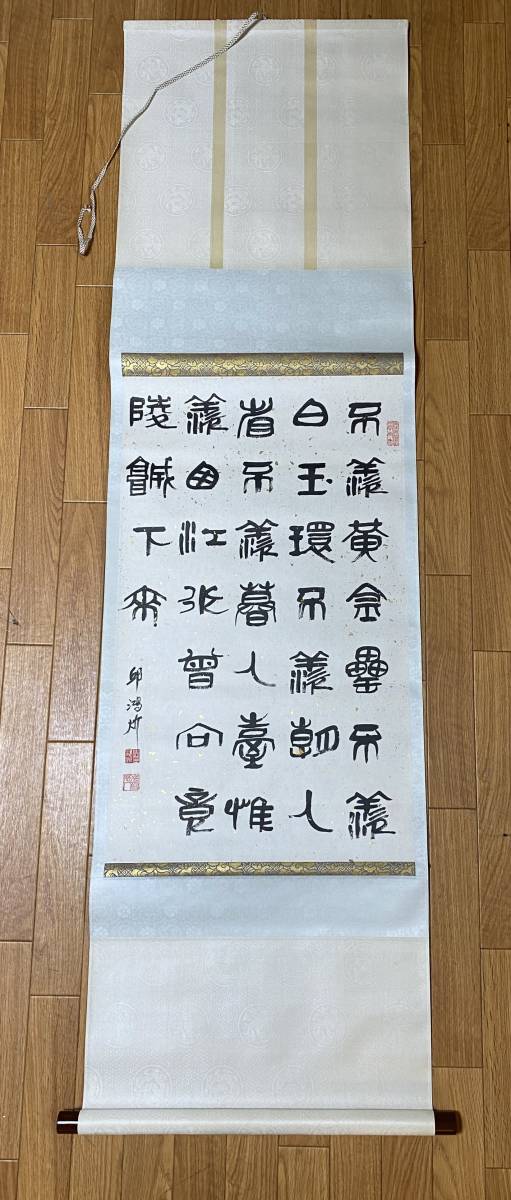 不羨黃金罍不羨
白玉環不羨朝入
省不羨暮入臺惟
羨西江水曾向竟
陵城下來
邱鴻